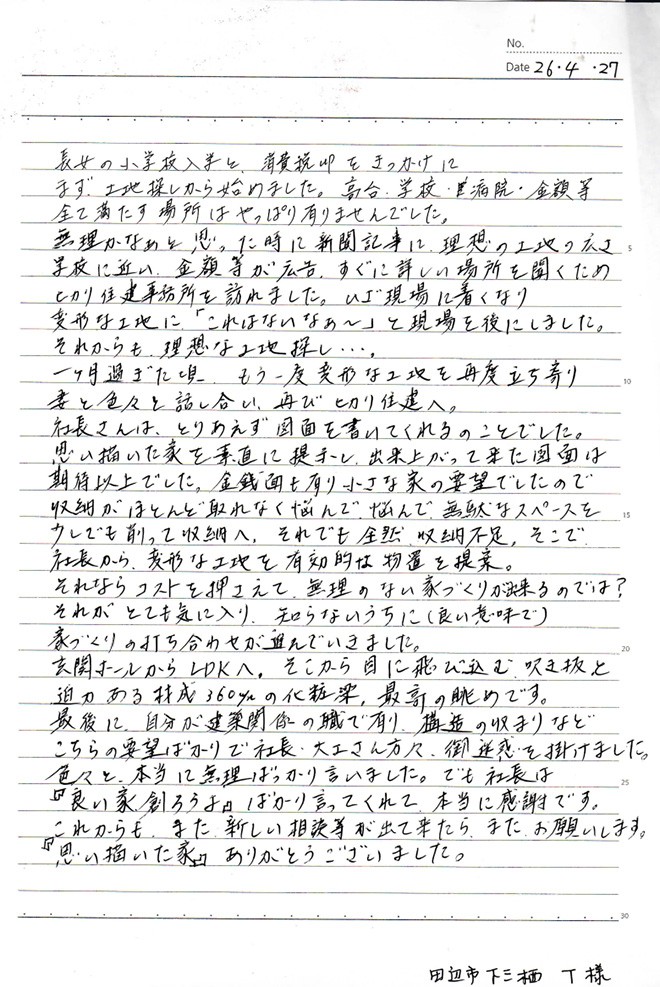 No.
Date 26・4・27
長女の小学校入学と、消費税UPをきっかけに
まず、土地探しから始めました。高台・学校・病院・金額等
全て満たす場所はやっぱり有りませんでした。
無理かなぁと思った時に新聞記事に、理想の土地の広さ
5
学校に近い、金額等が広告、すぐに詳しい場所を聞くため
ヒカリ住建事務所を訪れました。いざ現場に着くなり
変形な土地に、「これはないなぁ〜」と現場を後にしました。
それからも、理想な土地探し・・・。
一ヶ月過ぎた頃、もう一度変形な土地を再度立ち寄り
10
妻と色々と話し合い、再びヒカリ住建へ。
社長さんは、とりあえず図面を書いてくれるのことでした。
思い描いた家を素直に提示し、出来上がって来た図面は
期待以上でした。金銭面も有り小さな家の要望でしたので
収納がほとんど取れなく悩んで、悩んで、無駄なスペースを
15
少しでも削って収納へ、それでも全然、収納不足、そこで
社長から、変形な土地を有効的な物置を提案。
それならコストを押さえて、無理のない家づくりが出来るのでは?
それがとても気に入り、知らないうちに(良い意味で)
家づくりの打ち合わせが進んでいきました。
20
玄関ホールからLDKへ、そこから目に飛び込む、吹き抜と
迫力ある材成360㎜の化粧梁、最高の眺めです。
最後に、自分が建築関係の職で有り、構造の収まりなど
こちらの要望ばかりで社長・大工さん方々、御迷惑を掛けました。
色々と、本当に無理ばっかり言いました。でも社長は
25
『良い家創ろうよ』ばかり言ってくれて、本当に感謝です。
これからも、また、新しい相談等が出て来たら、また、お願いします。
『思い描いた家』ありがとうございました。
30
田辺市下三栖 T様